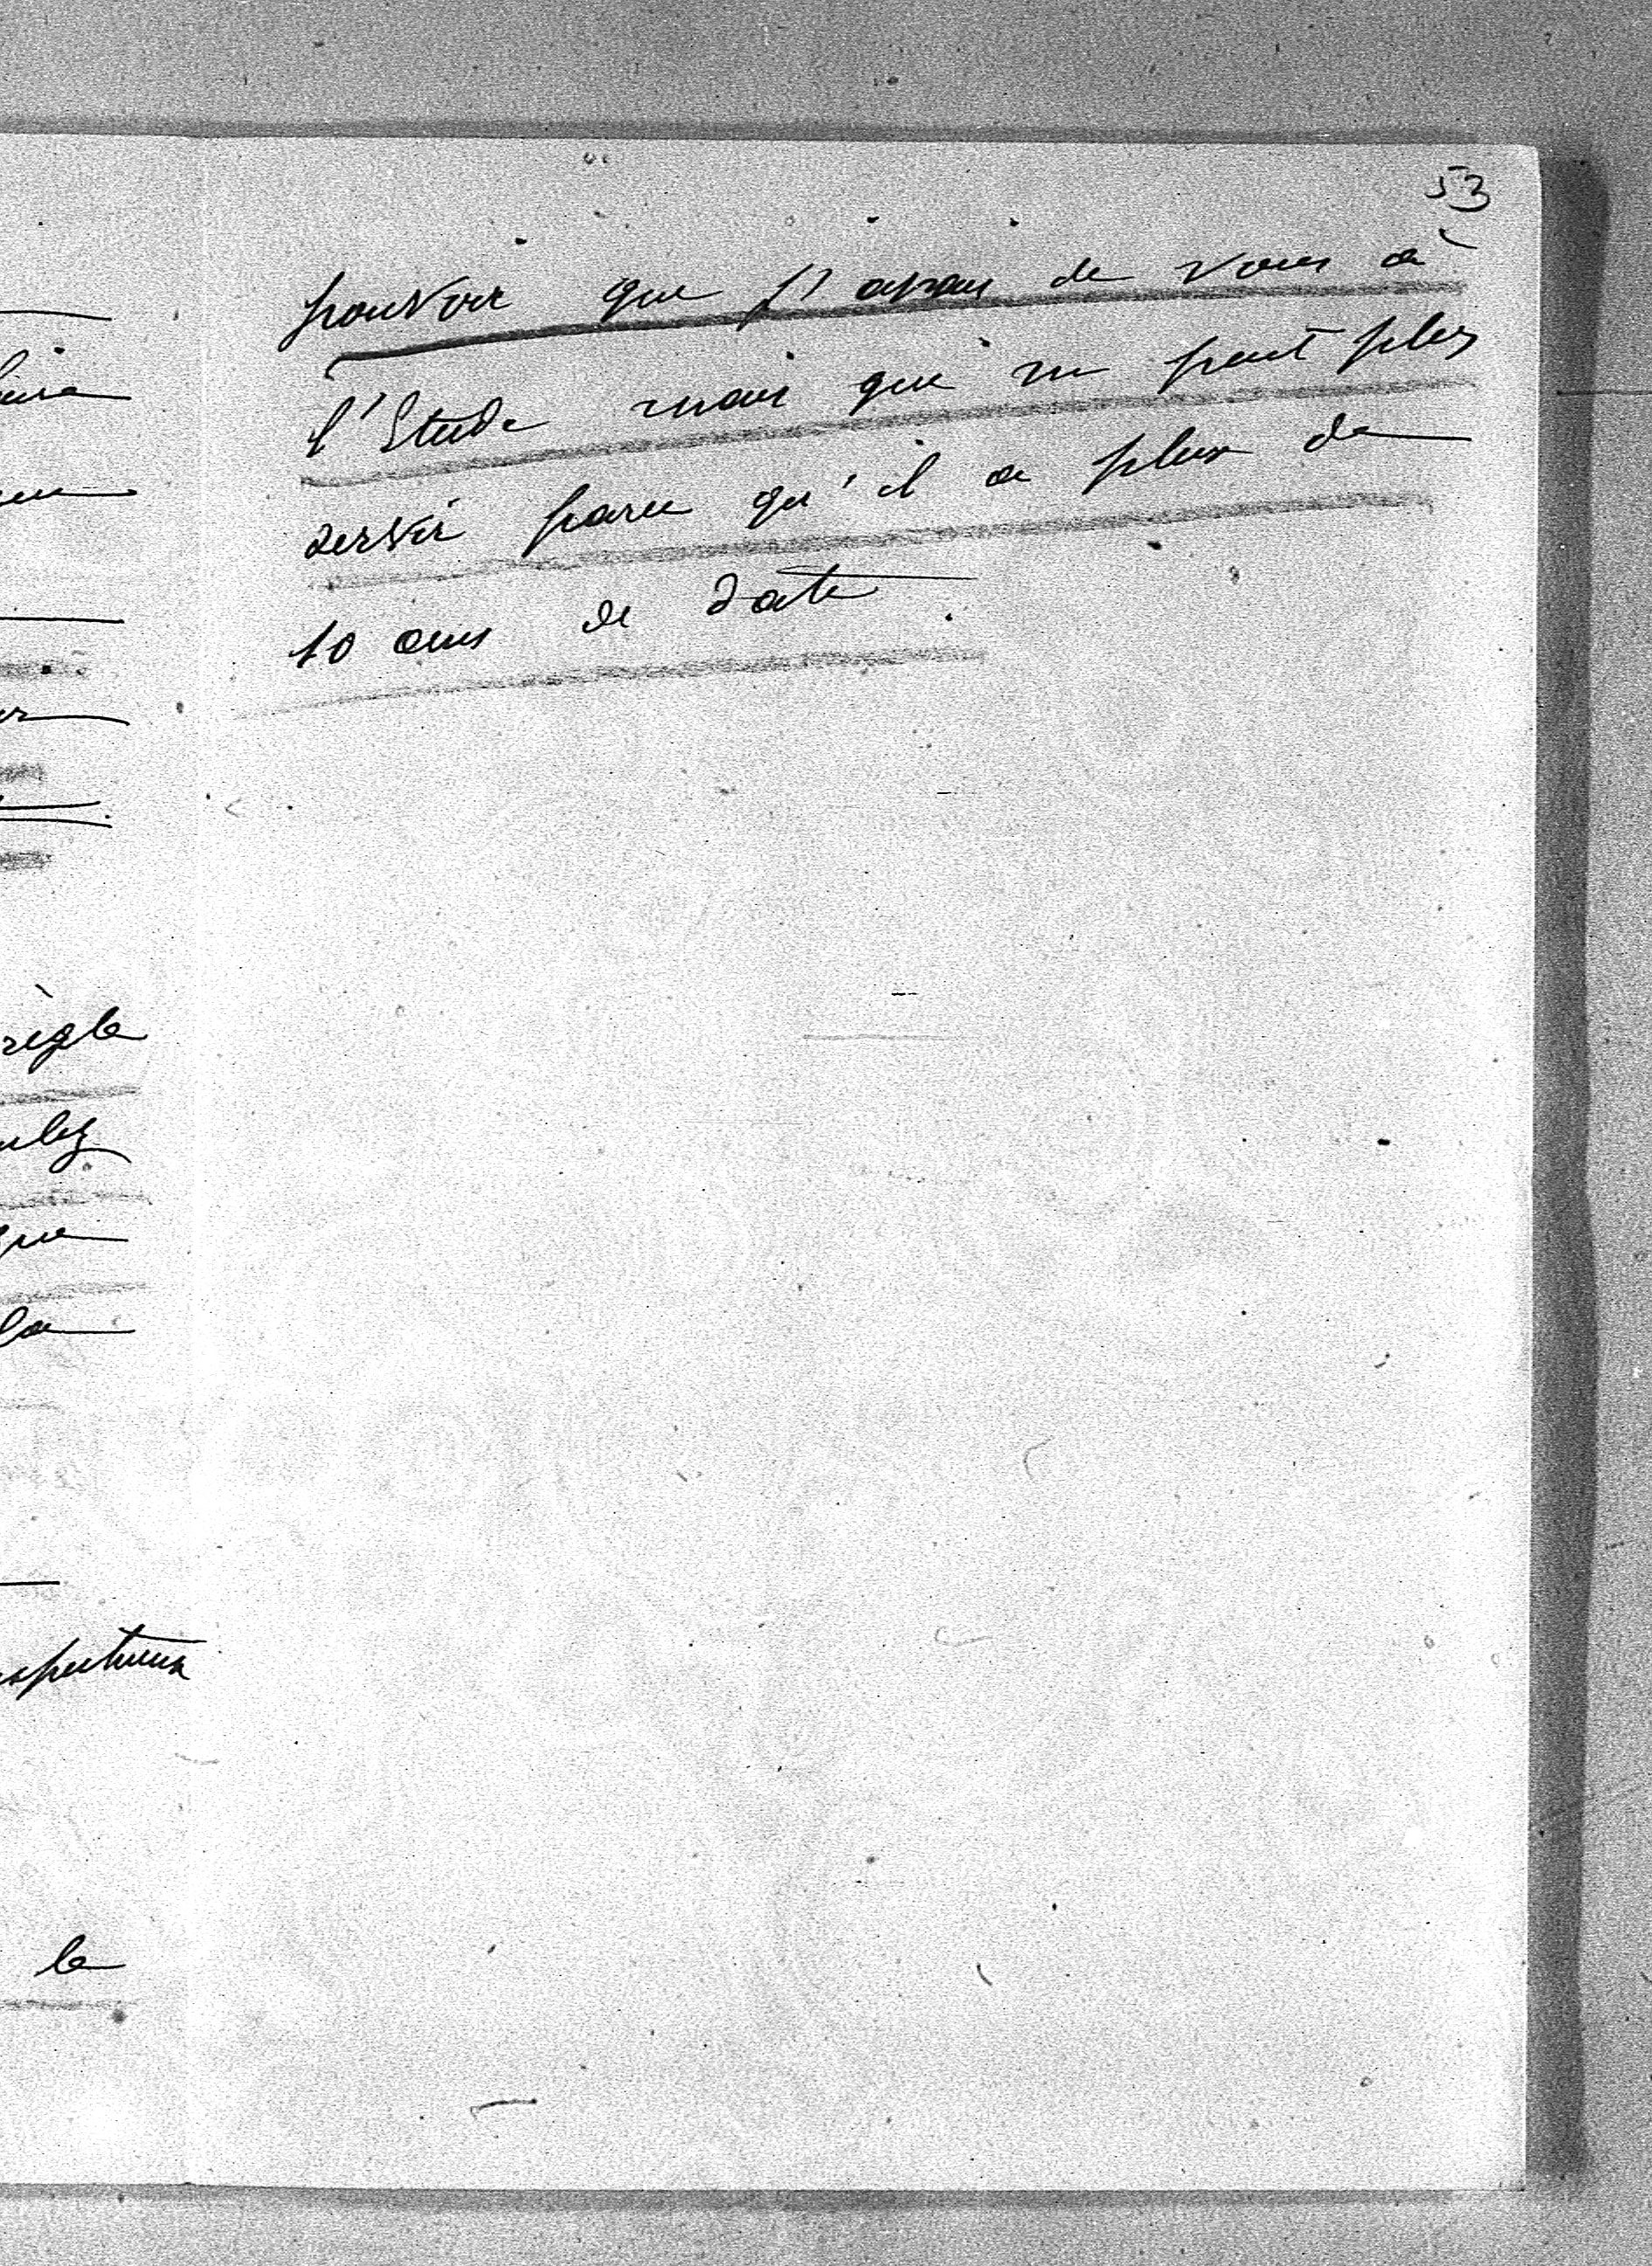 53
pouvoir que j'avais de vous à
l'Etude mais qui ne peut plus
servir parce qu'il a plus de
10 ans de date.
règle
que
la
le